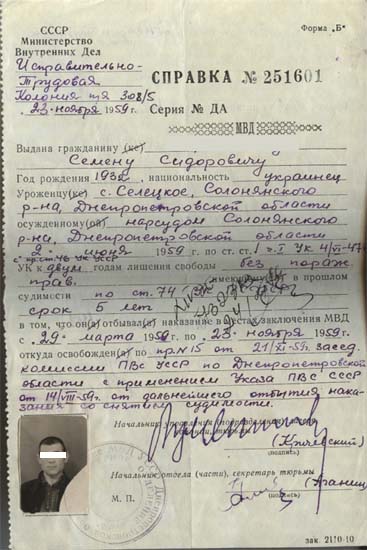 СССР
Форма „Б“
Министерство
Внутренних Дел
Исправительно-
Трудовая
Колония 308/5
СПРАВКА № 251601
23 ноября 1959 г.
Серия № ДА
МВД
Выдана гражданину (ке)
Семену Сидоровичу
Год рождения 1932, национальность украинец
Уроженцу(ке) с. Селецкое, Солонянского
р-на, Днепропетровской области
осужденному(ой) нарсудом Солонянского
р-на, Днепропетровской области
2 июня 1959 г. по ст. ст. 1 ч. I УК 4/VI-47
УК к двум годам лишения свободы без пораж.
прав. имеющ в прошлом
судимости по ст. 74
срок 5 лет
в том, что он(а) отбывал(а) наказание в местах заключения МВД
с 29 марта 1959 г. по 23 ноября 1959 г.
откуда освобожден(а) по пр. № 15 от 21/XI-59г. засед.
комиссии ПВс УССР по Днепропетровской
области с применением Указа ПВС СССР
от 14/VIII-59г. от дальнейшего отбытия нака-
зания со снятием судимости.
Начальник
(Кричевский)
(подпись)
Начальник отдела (части), секретарь тюрьмы
М. П.
(подпись)
зак. 2110-10